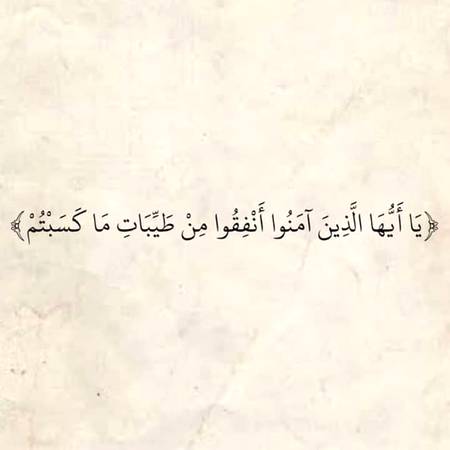 ﴿يَا أَيُّهَا الَّذِينَ آمَنُوا أَنْفِقُوا مِنْ طَيِّبَاتِ مَا كَسَبْتُمْ﴾